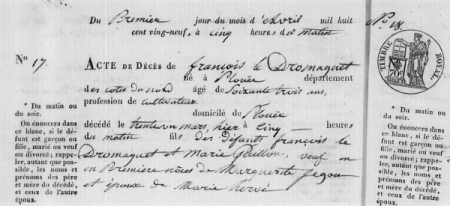 Du Premier jour du mois d'Avril mil huit
cent vingt-neuf, à cinq heures d matin
N° 18.
N° 17.
ACTE DE DÉCÈS de françois le Dromaguet
né à Plouër département
des cotes du nord âgé de Soixante trois ans,
profession de cultivateur
domicilié de Plouër
décédé le trente un mars, hier à cinq heures
du matin fils des défunts françois le
Dromaguet et Marie Guillou, veuf en
en Première nôces de Marguerite Jegou
et époux de Marie hervé
TIMBRE ROYAL
* Du matin ou
du soir.
On énoncera dans
ce blanc, si le dé-
funt est garçon ou
fille, marié ou veuf
ou divorcé; rappe-
ler, autant que pos-
sible, les noms et
prénoms des père
et mère du décédé,
et ceux de l'autre
époux.
* Du matin ou
du soir.
On énoncera dans
ce blanc, si le dé-
funt est garçon ou
fille, marié ou veuf
ou divorcé; rappe-
ler, autant que pos-
sible, les noms et
prénoms des père
et mère du décédé,
et ceux de l'autre
époux.